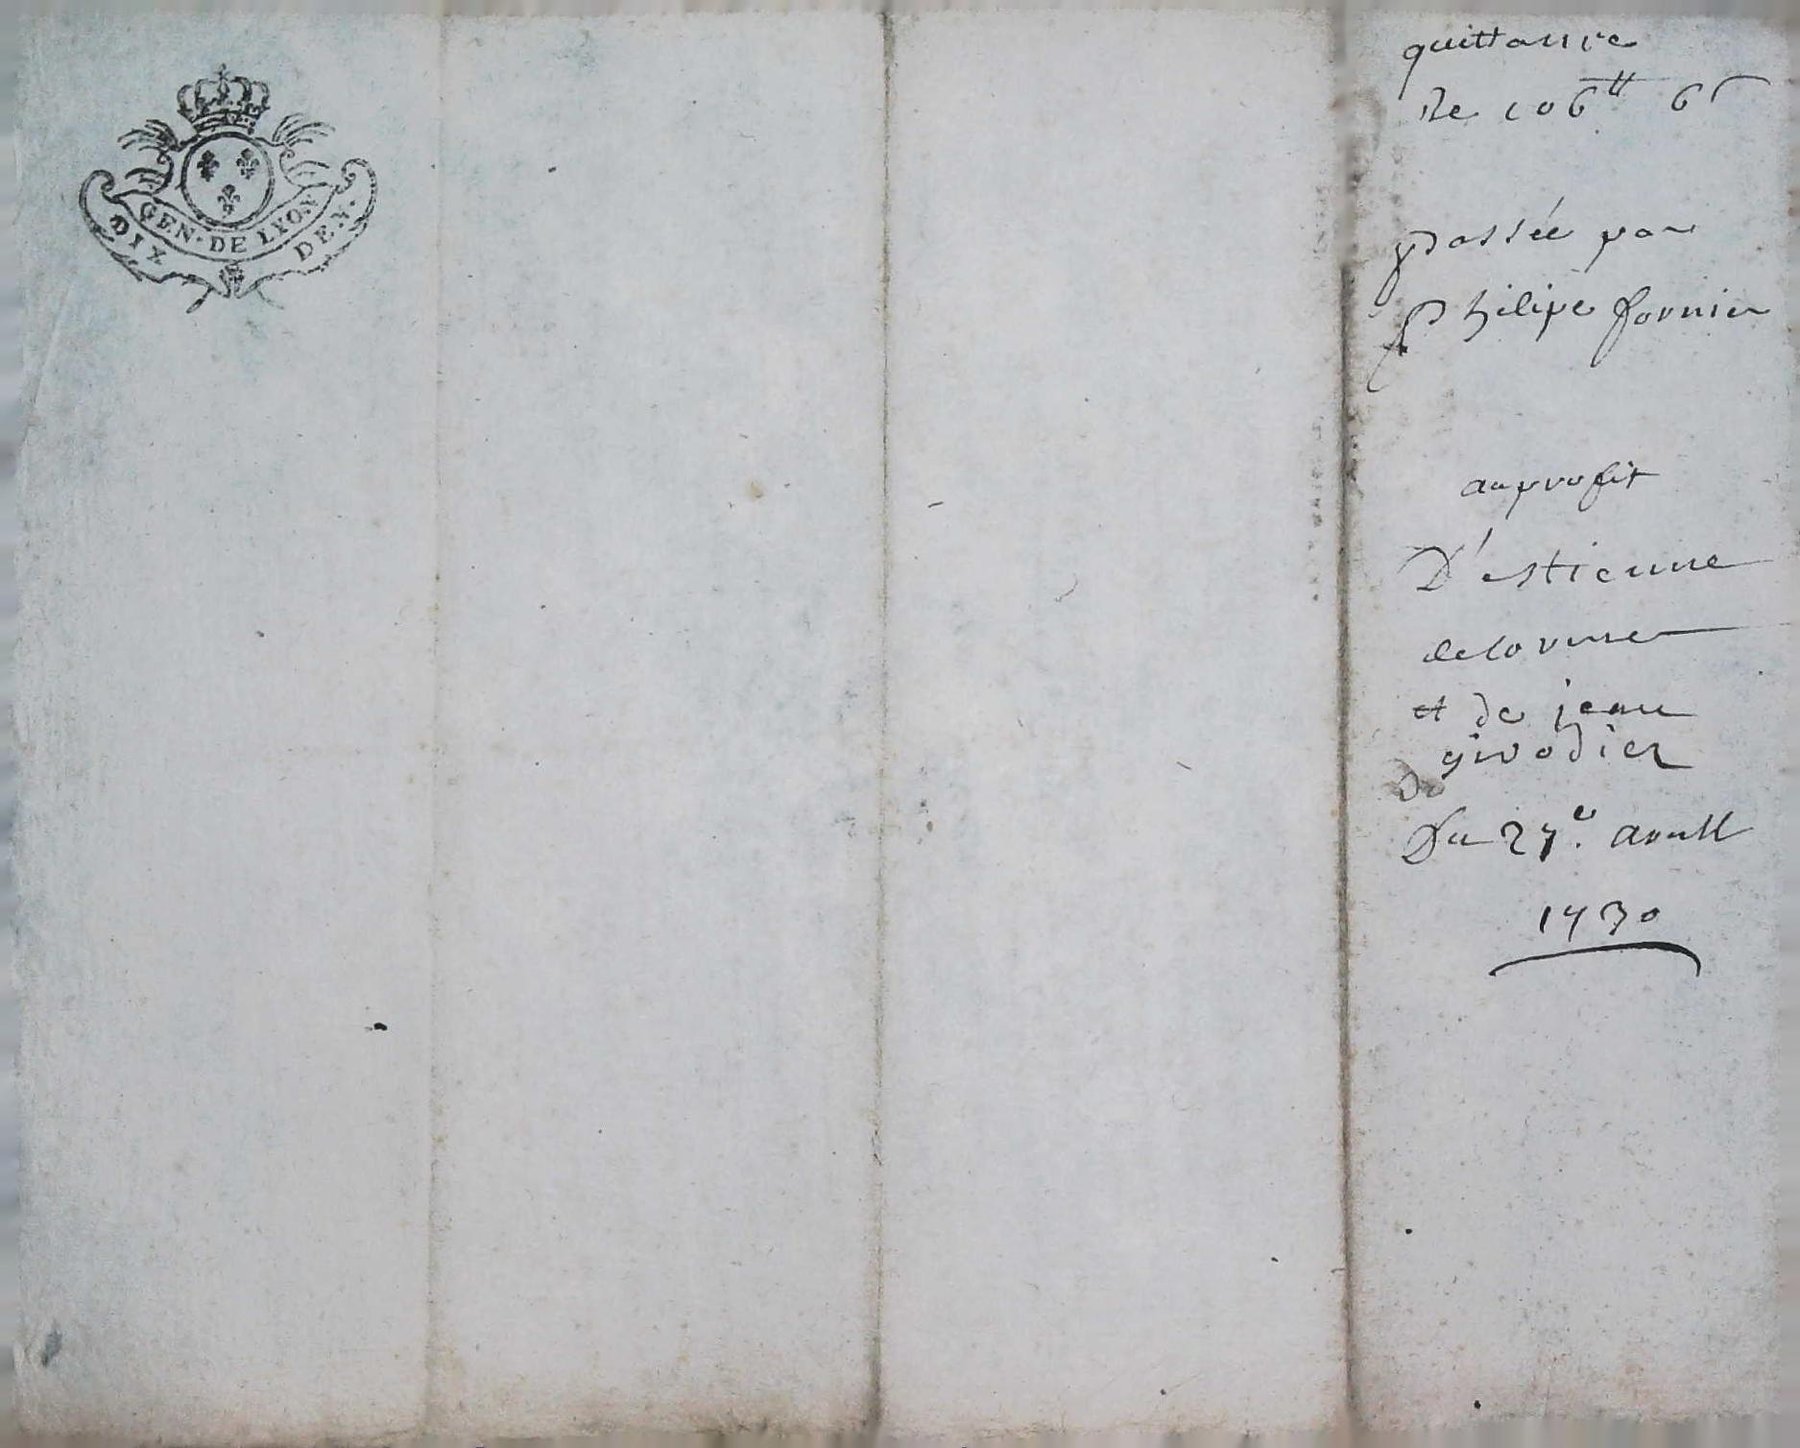 GEN. DE LYON
DIX DEN.
quittance
De 106tt 6s
passée par
Philipe fornier
au profit
D'estienne
delorme
et de jean
girodier
Du
Du 27e. avrill
1730